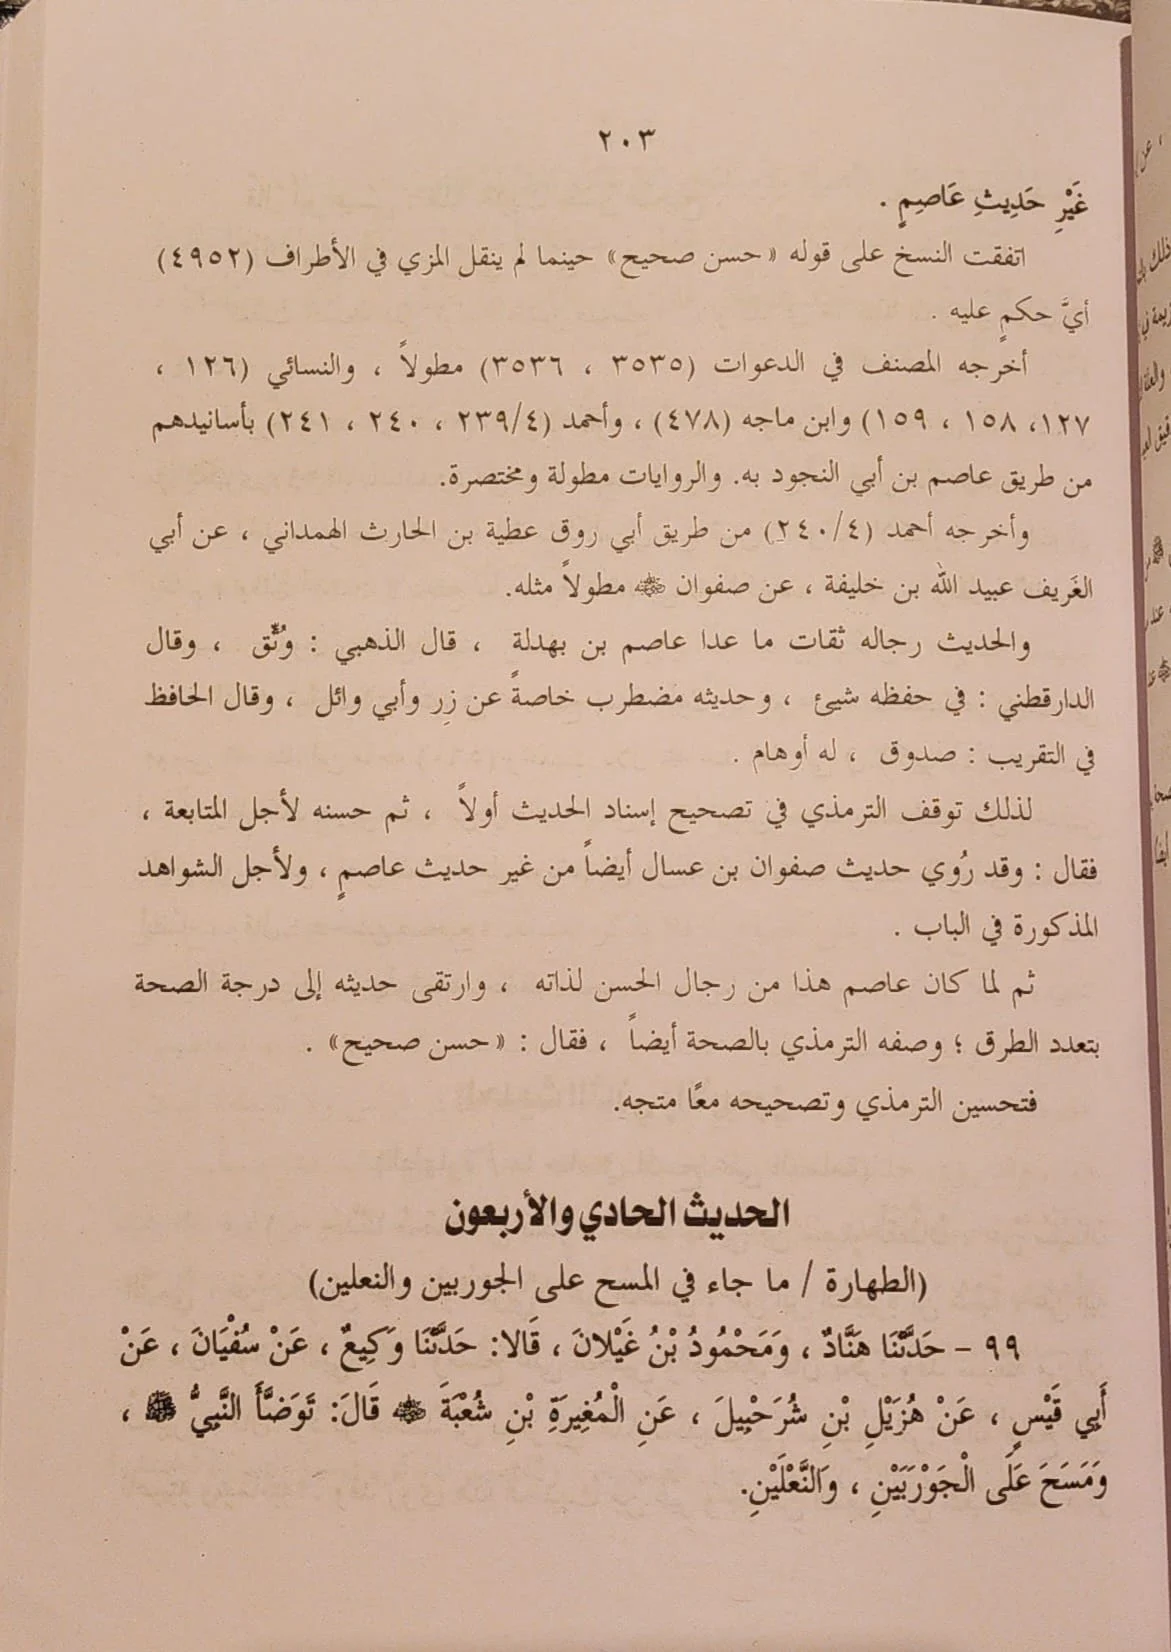 ٢٠٣
غَيْرِ حَدِيثِ عَاصِمٍ .
اتفقت النسخ على قوله «حسن صحيح» حينما لم ينقل المزي في الأطراف (٤٩٥٢)
أيَّ حكمٍ عليه .
أخرجه المصنف في الدعوات (٣٥٣٥ ، ٣٥٣٦) مطولاً ، والنسائي (١٢٦ ،
١٢٧، ١٥٨ ، ١٥٩) وابن ماجه (٤٧٨) ، وأحمد (٢٣٩/٤ ، ٢٤٠ ، ٢٤١) بأسانيدهم
من طريق عاصم بن أبي النجود به. والروايات مطولة ومختصرة.
وأخرجه أحمد (٢٤٠/٤) من طريق أبي روق عطية بن الحارث الهمداني ، عن أبي
الغَريف عبيد الله بن خليفة ، عن صفوان رضي الله عنه مطولاً مثله.
والحديث رجاله ثقات ما عدا عاصم بن بهدلة ، قال الذهبي : وُثِّق ، وقال
الدارقطني : في حفظه شيئ ، وحديثه مضطرب خاصةً عن زِر وأبي وائل ، وقال الحافظ
في التقريب : صدوق ، له أوهام .
لذلك توقف الترمذي في تصحيح إسناد الحديث أولاً ، ثم حسنه لأجل المتابعة ،
فقال : وقد رُوي حديث صفوان بن عسال أيضاً من غير حديث عاصمٍ ، ولأجل الشواهد
المذكورة في الباب .
ثم لما كان عاصم هذا من رجال الحسن لذاته ، وارتقى حديثه إلى درجة الصحة
بتعدد الطرق ؛ وصفه الترمذي بالصحة أيضاً ، فقال : «حسن صحيح» .
فتحسين الترمذي وتصحيحه معًا متجه.
الحديث الحادي والأربعون
(الطهارة / ما جاء في المسح على الجوربين والنعلين)
٩٩ – حَدَّثَنَا هَنَّادٌ ، وَمَحْمُودُ بْنُ غَيْلانَ ، قَالا: حَدَّثَنَا وَكِيعٌ ، عَنْ سُفْيَانَ ، عَنْ
أَبِي قَيْسٍ ، عَنْ هُزَيْلِ بْنِ شُرَحْبِيلَ ، عَنِ الْمُغِيرَةِ بْنِ شُعْبَةَ رضي الله عنه قَالَ: تَوَضَّأَ النَّبِيُّ ﷺ ،
وَمَسَحَ عَلَى الْجَوْرَبَيْنِ ، وَالنَّعْلَيْنِ.